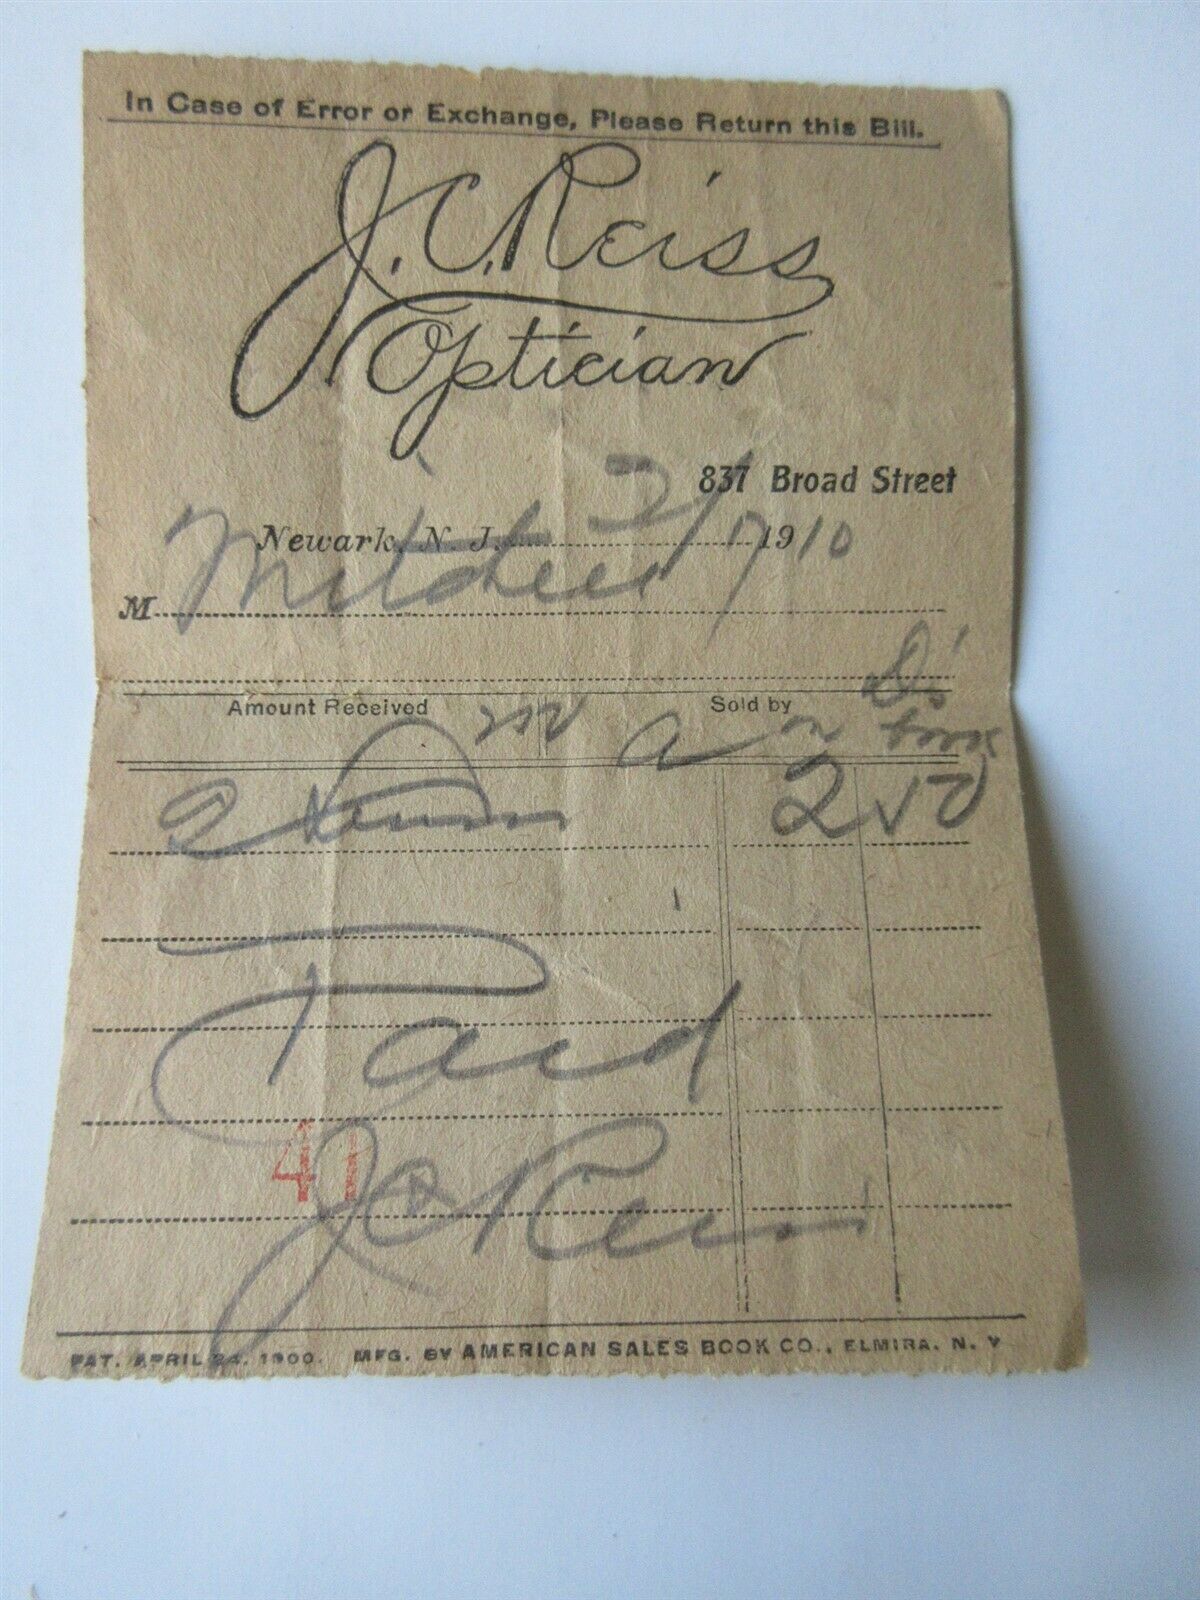 In Case of Error or Exchange, Please Return this Bill.
J. C. Reiss
Optician
837 Broad Street
Newark, N. J. 2/17 1910
M Mitchell
Amount Received Sold by
2 50
Paid
41
J C Reiss
PAT. APRIL 24, 1900. MFG. BY AMERICAN SALES BOOK CO., ELMIRA. N. Y